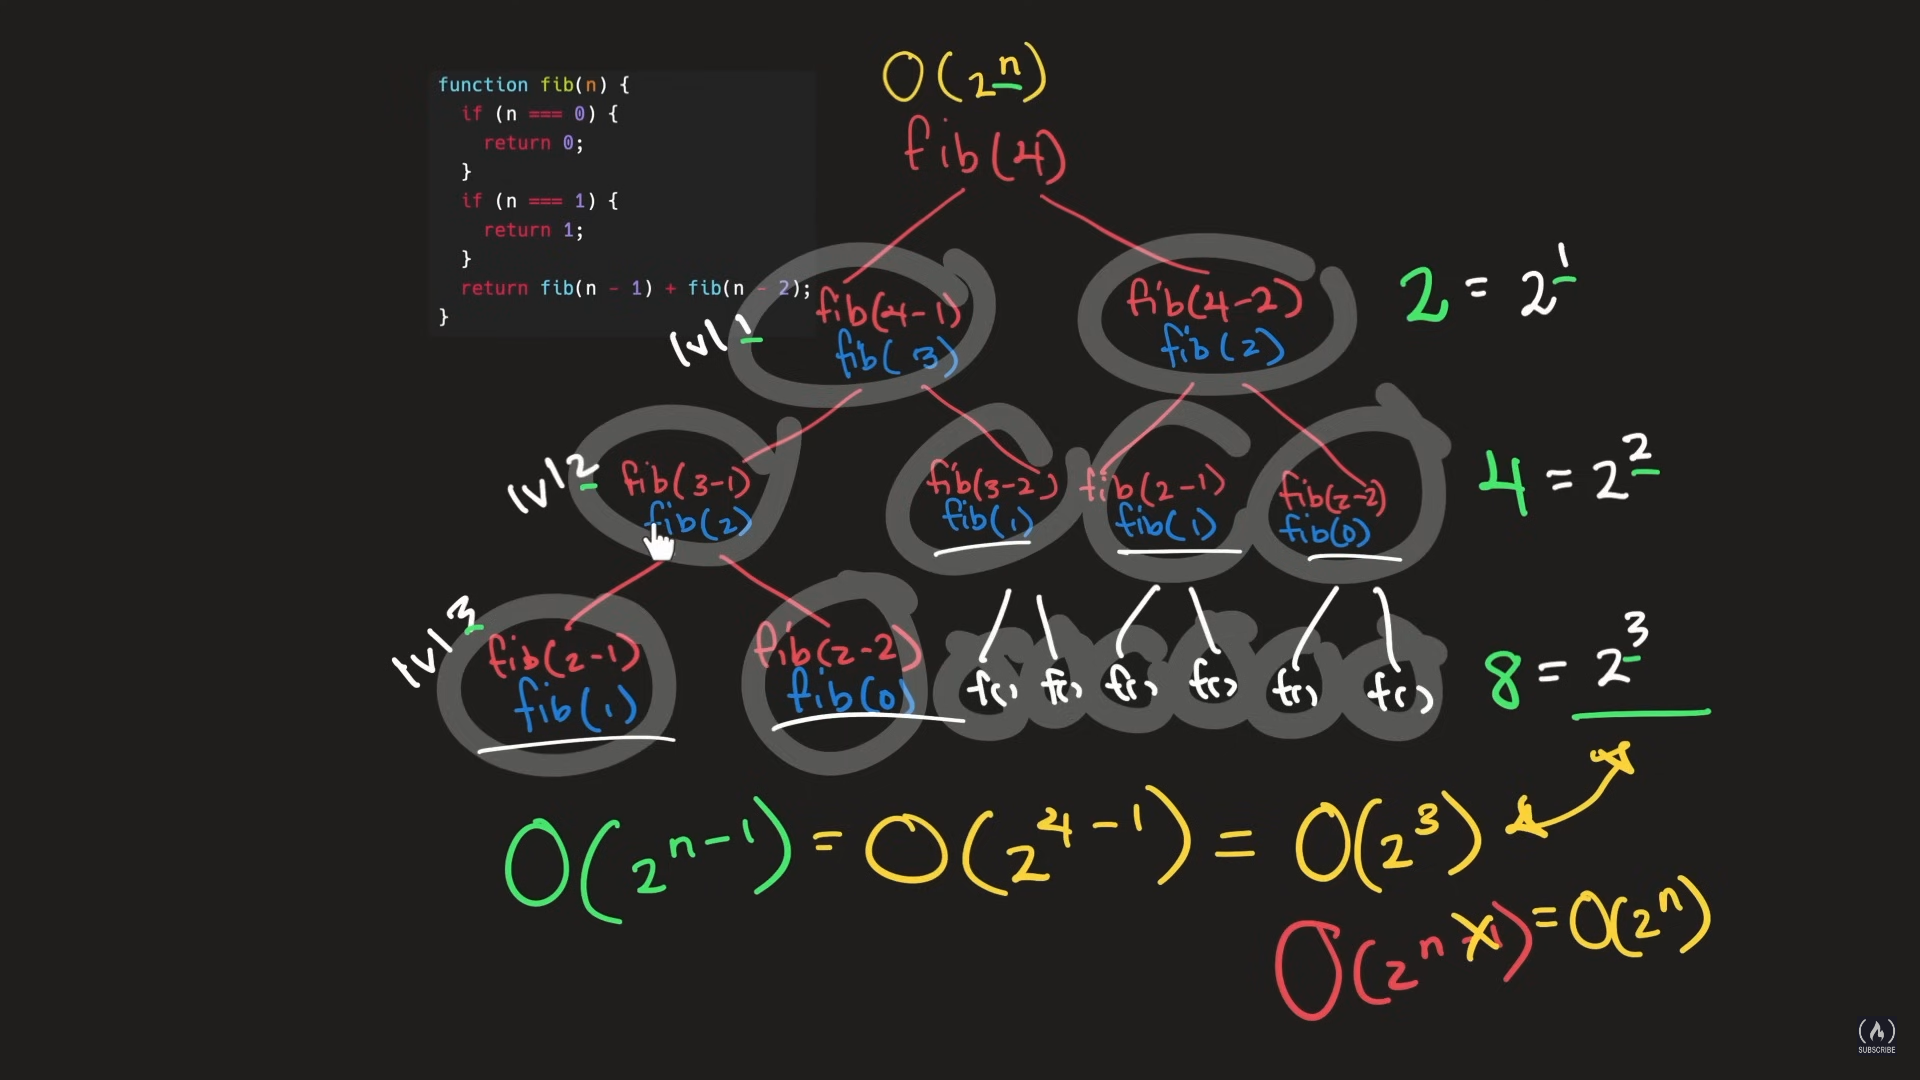 O(2ⁿ)
function fib(n) {
if (n === 0) {
return 0;
}
if (n === 1) {
return 1;
}
return fib(n - 1) + fib(n - 2);
}
fib(4)
lvl 1
fib(4-1)
fib(3)
fib(4-2)
fib(2)
2 = 2¹
lvl 2
fib(3-1)
fib(2)
fib(3-2)
fib(1)
fib(2-1)
fib(1)
fib(2-2)
fib(0)
4 = 2²
lvl 3
fib(2-1)
fib(1)
fib(2-2)
fib(0)
f() f() f() f() f() f()
8 = 2³
O(2ⁿ⁻¹) = O(2⁴⁻¹) = O(2³)
O(2ⁿ⁻¹) = O(2ⁿ)
SUBSCRIBE